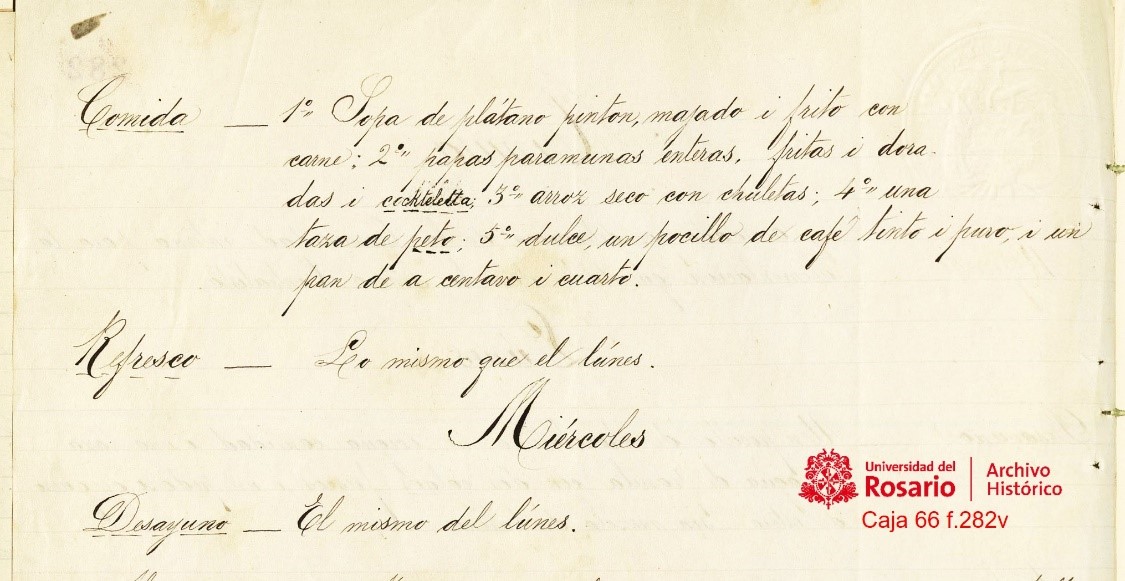 Comida — 1º Sopa de plátano pinton, majado i frito con
carne; 2º papas paramunas enteras, fritas i dora-
das i cockteletta; 3º arroz seco con chuletas; 4º una
taza de peto; 5º dulce, un pocillo de café tinto i puro, i un
pan de a centavo i cuarto.
Refresco — Lo mismo que el lúnes.
Miércoles
Desayuno — El mismo del lúnes.
Universidad del Rosario | Archivo Histórico
Caja 66 f.282v